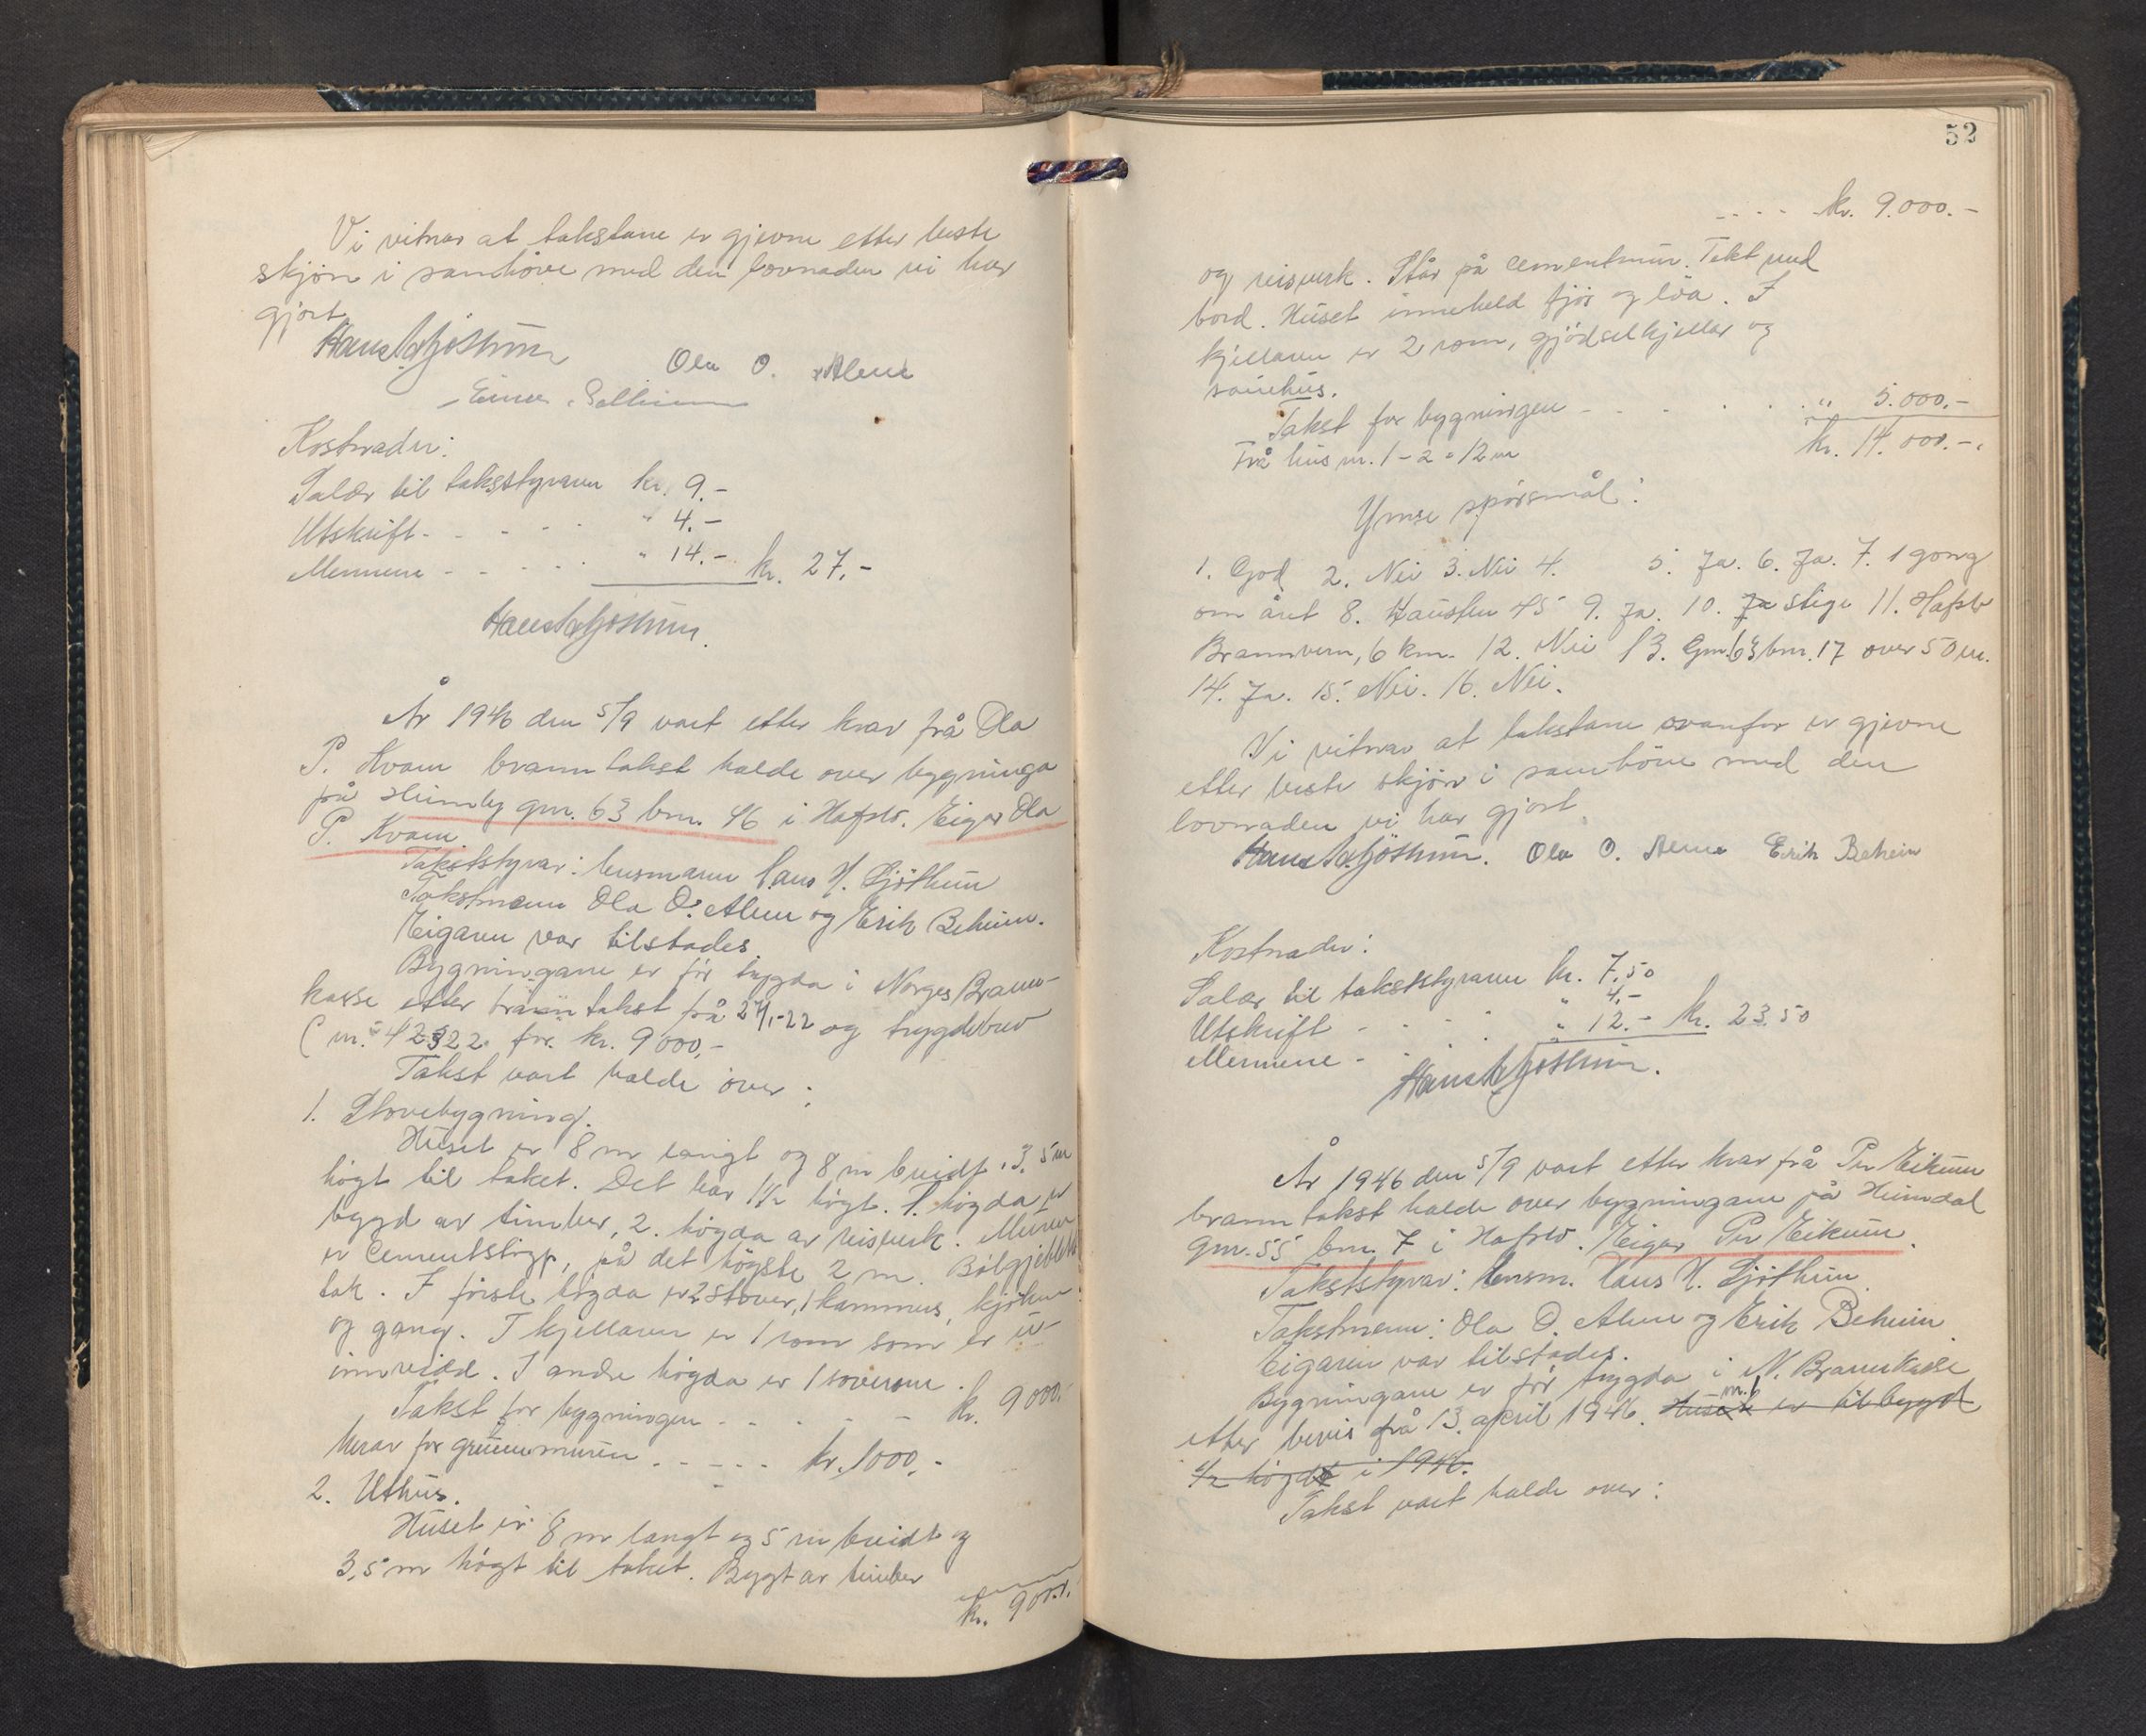 Vi vitnar at takstane er gjevne etter beste
skjøn i samhøve med den lovnaden vi har
gjort
Ola O. Alme
Kostnader:
Salær til takststyraren kr. 9.-
Utskrift - - - - " 4.-
Mennene - - - - - " 14.- kr. 27.-
År 1946 den 5/9 vart etter krav frå Ola
P. Kvam branntakst halde over bygninga
på Heimly gnr. 63 bnr. 46 i Hafslo. Eigar Ola
P. Kvam.
Takststyrar: lensmann Hans H. Gjøthun
Takstmenn Ola O. Alme og Erik Beheim.
Eigaren var tilstades.
Bygningane er før trygda i Norges Brann-
kasse etter branntakst på og trygdebrev
for kr. 9000,-
Takst vart halde over:
1. Stovebygning.
Huset er 8 m langt og 8 m breidt. 3.5 m
høgt til taket. Det har 1½ høgt. 1. høgda er
bygd av timber, 2. høgda av reisverk. Muren
er Cementstøyp, på det høgste 2 m.
tak. I første høgda er 2 stover, 1 kammers, kjøken
og gang. I kjellaren er 1 rom som er u-
innreidd. I andre høgda er 1 soverom.
Takst for bygningen - - - - - kr. 9000.-
Herav for grunnmuren - - - - - kr. 1000.-
2. Uthus.
Huset er 8 m langt og 5 m breidt og
3,5 m høgt til taket. Bygt av timber
kr. 9000.-
52
- - - - kr. 9.000.-
og reisverk. Står på cementmur. Tekt med
bord. Huset inneheld fjøs og løa. I
kjellaren er 2 rom, gjødselkjellar og
sauehus.
Takst for bygningen - - - - - " 5.000.-
kr. 14.000.-
Frå hus nr. 1 - 2 = 12 m
Ymse spørsmål:
1. God 2. Nei 3. Nei 4. 5. Ja. 6. Ja. 7. 1 gong
om året 8. Hausten 45 9. Ja. 10. Ja stige 11. Hafslo
Brannvern, 6 km. 12. Nei 13. Gnr. 63 bnr. 17 over 50 m.
14. Ja. 15. Nei. 16. Nei.
Vi vitnar at takstane ovanfor er gjevne
etter beste skjøn i samhøve med den
lovnaden vi har gjort.
Ola O. Alme Erik Beheim
Kostnader:
Salær til takststyraren kr. 7,50
Utskrift - - - - " 4.-
Mennene - - - - " 12.- kr. 23.50
År 1946 den 5/9 vart etter krav frå Per Eikum
branntakst halde over bygningane på Heimdal
gnr. 55 bnr. 7 i Hafslo. Eigar Per Eikum.
Takststyrar: lensm. Hans H. Gjøthun
Takstmenn: Ola O. Alme og Erik Beheim
Eigaren var tilstades.
Bygningane er før trygda i N. Brannkasse
etter bevis frå 13. april 1946. Huset er tilbygt
m.
½ høgd i 1946.
Takst vart halde over: